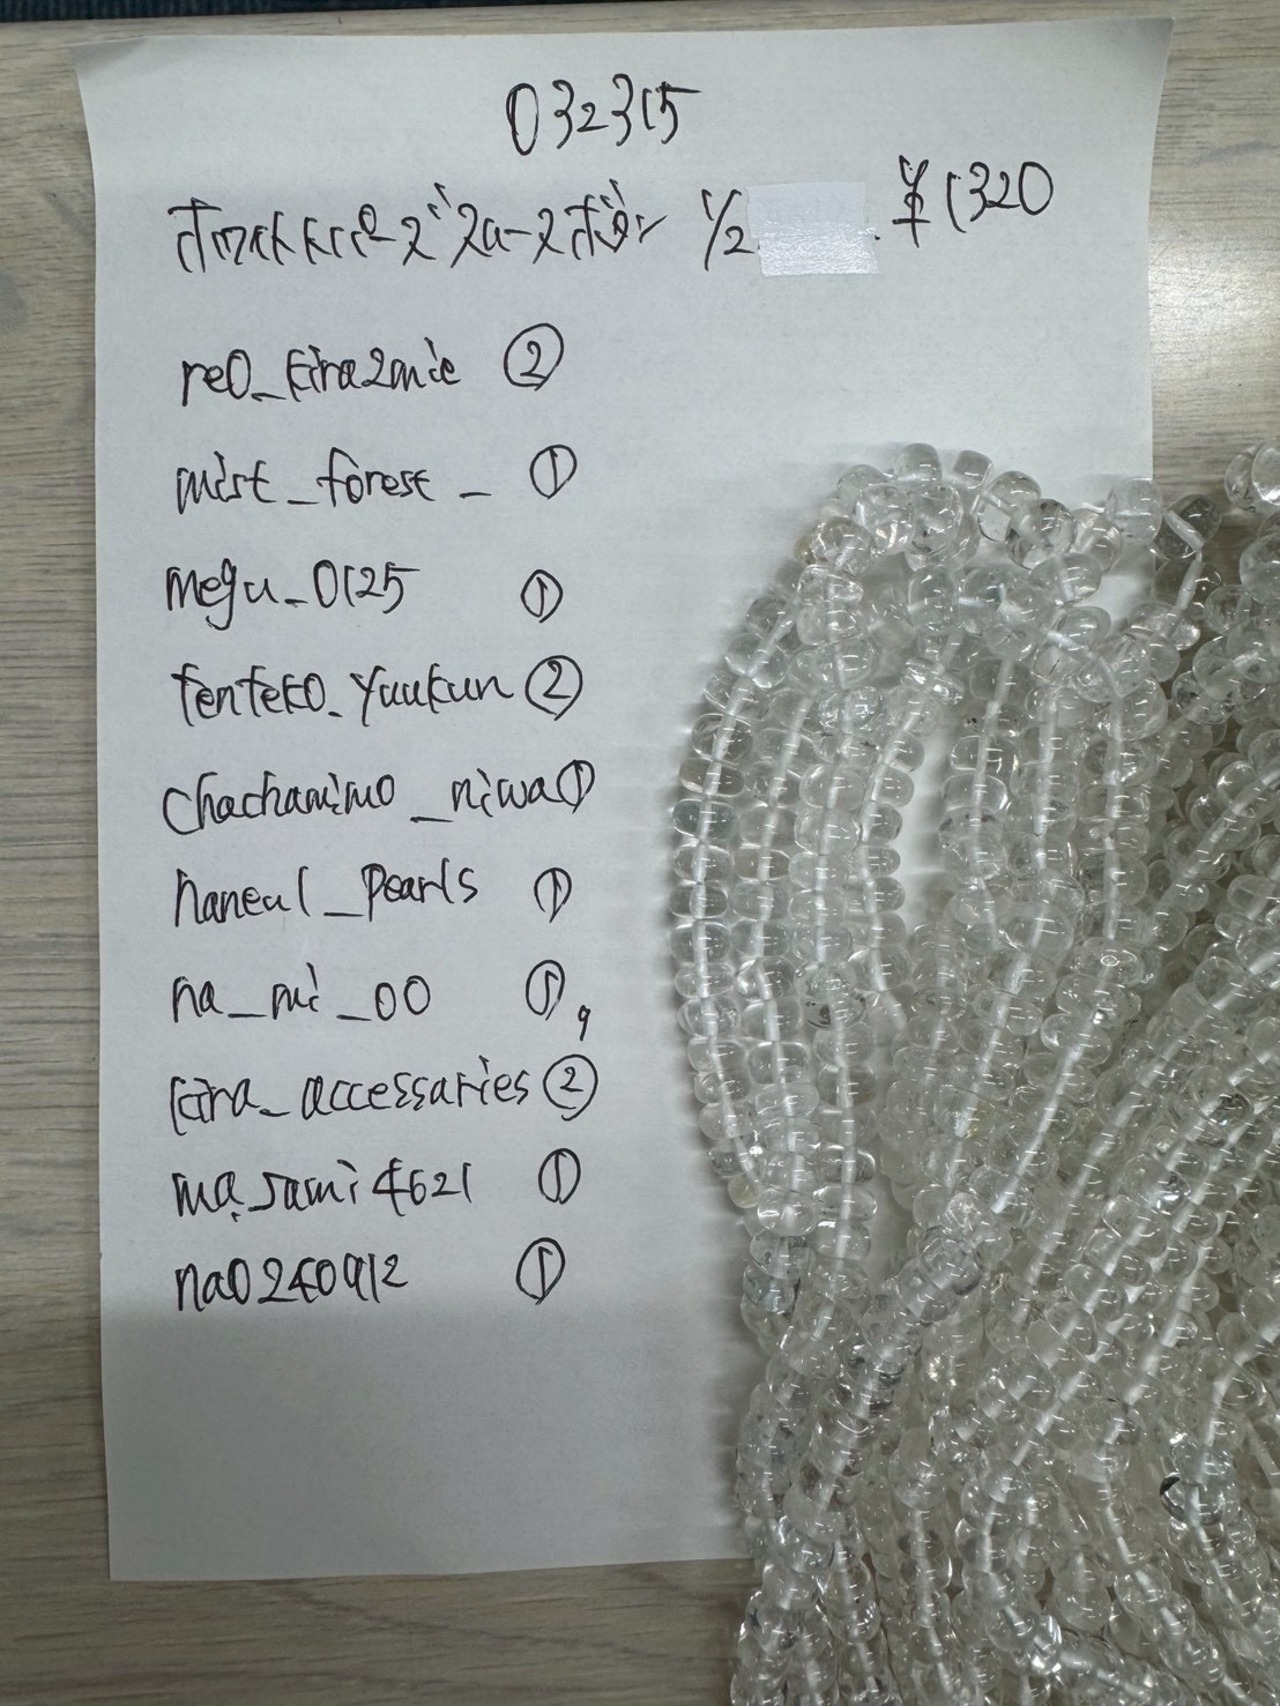 032315
1/2 ¥1320
re0_kira2mie ②
mist_forest_ ①
megu_0125 ①
tenteko_yuukun ②
chachamimo_niwa ①
haneul_pearls ①
na_mi_00 ①,
kira_accessaries ②
ma_sami4621 ①
na0240912 ①